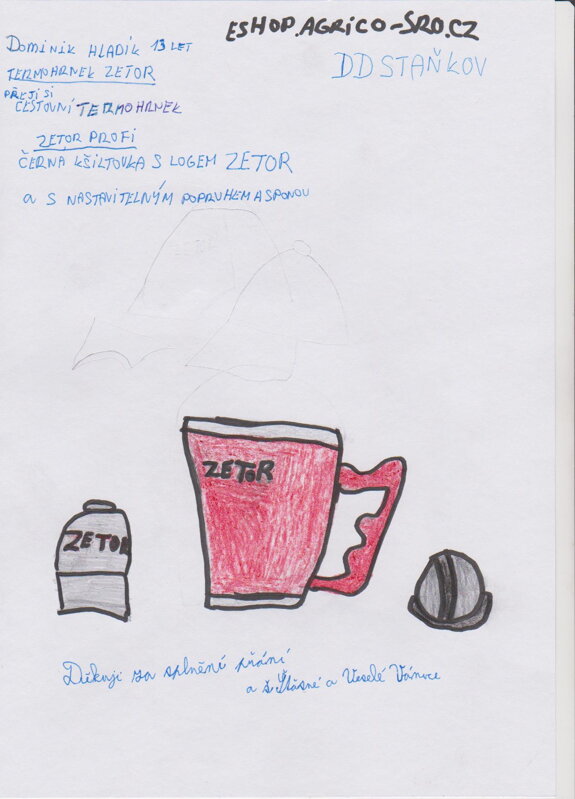 ESHOP.AGRICO-SRO.CZ
DOMINIK HLADÍK 13 LET
DD STAŇKOV
TERMOHRNEK ZETOR
PŘEJI SI
CESTOVNÍ TERMOHRNEK
ZETOR PROFI
ČERNA KŠILTOVKA S LOGEM ZETOR
a S NASTAVITELNÝM POPRUHEM A SPONOU
ZETOR
ZETOR
Děkuji za splnění přání
a š Šťasné a Veselé Vánoce